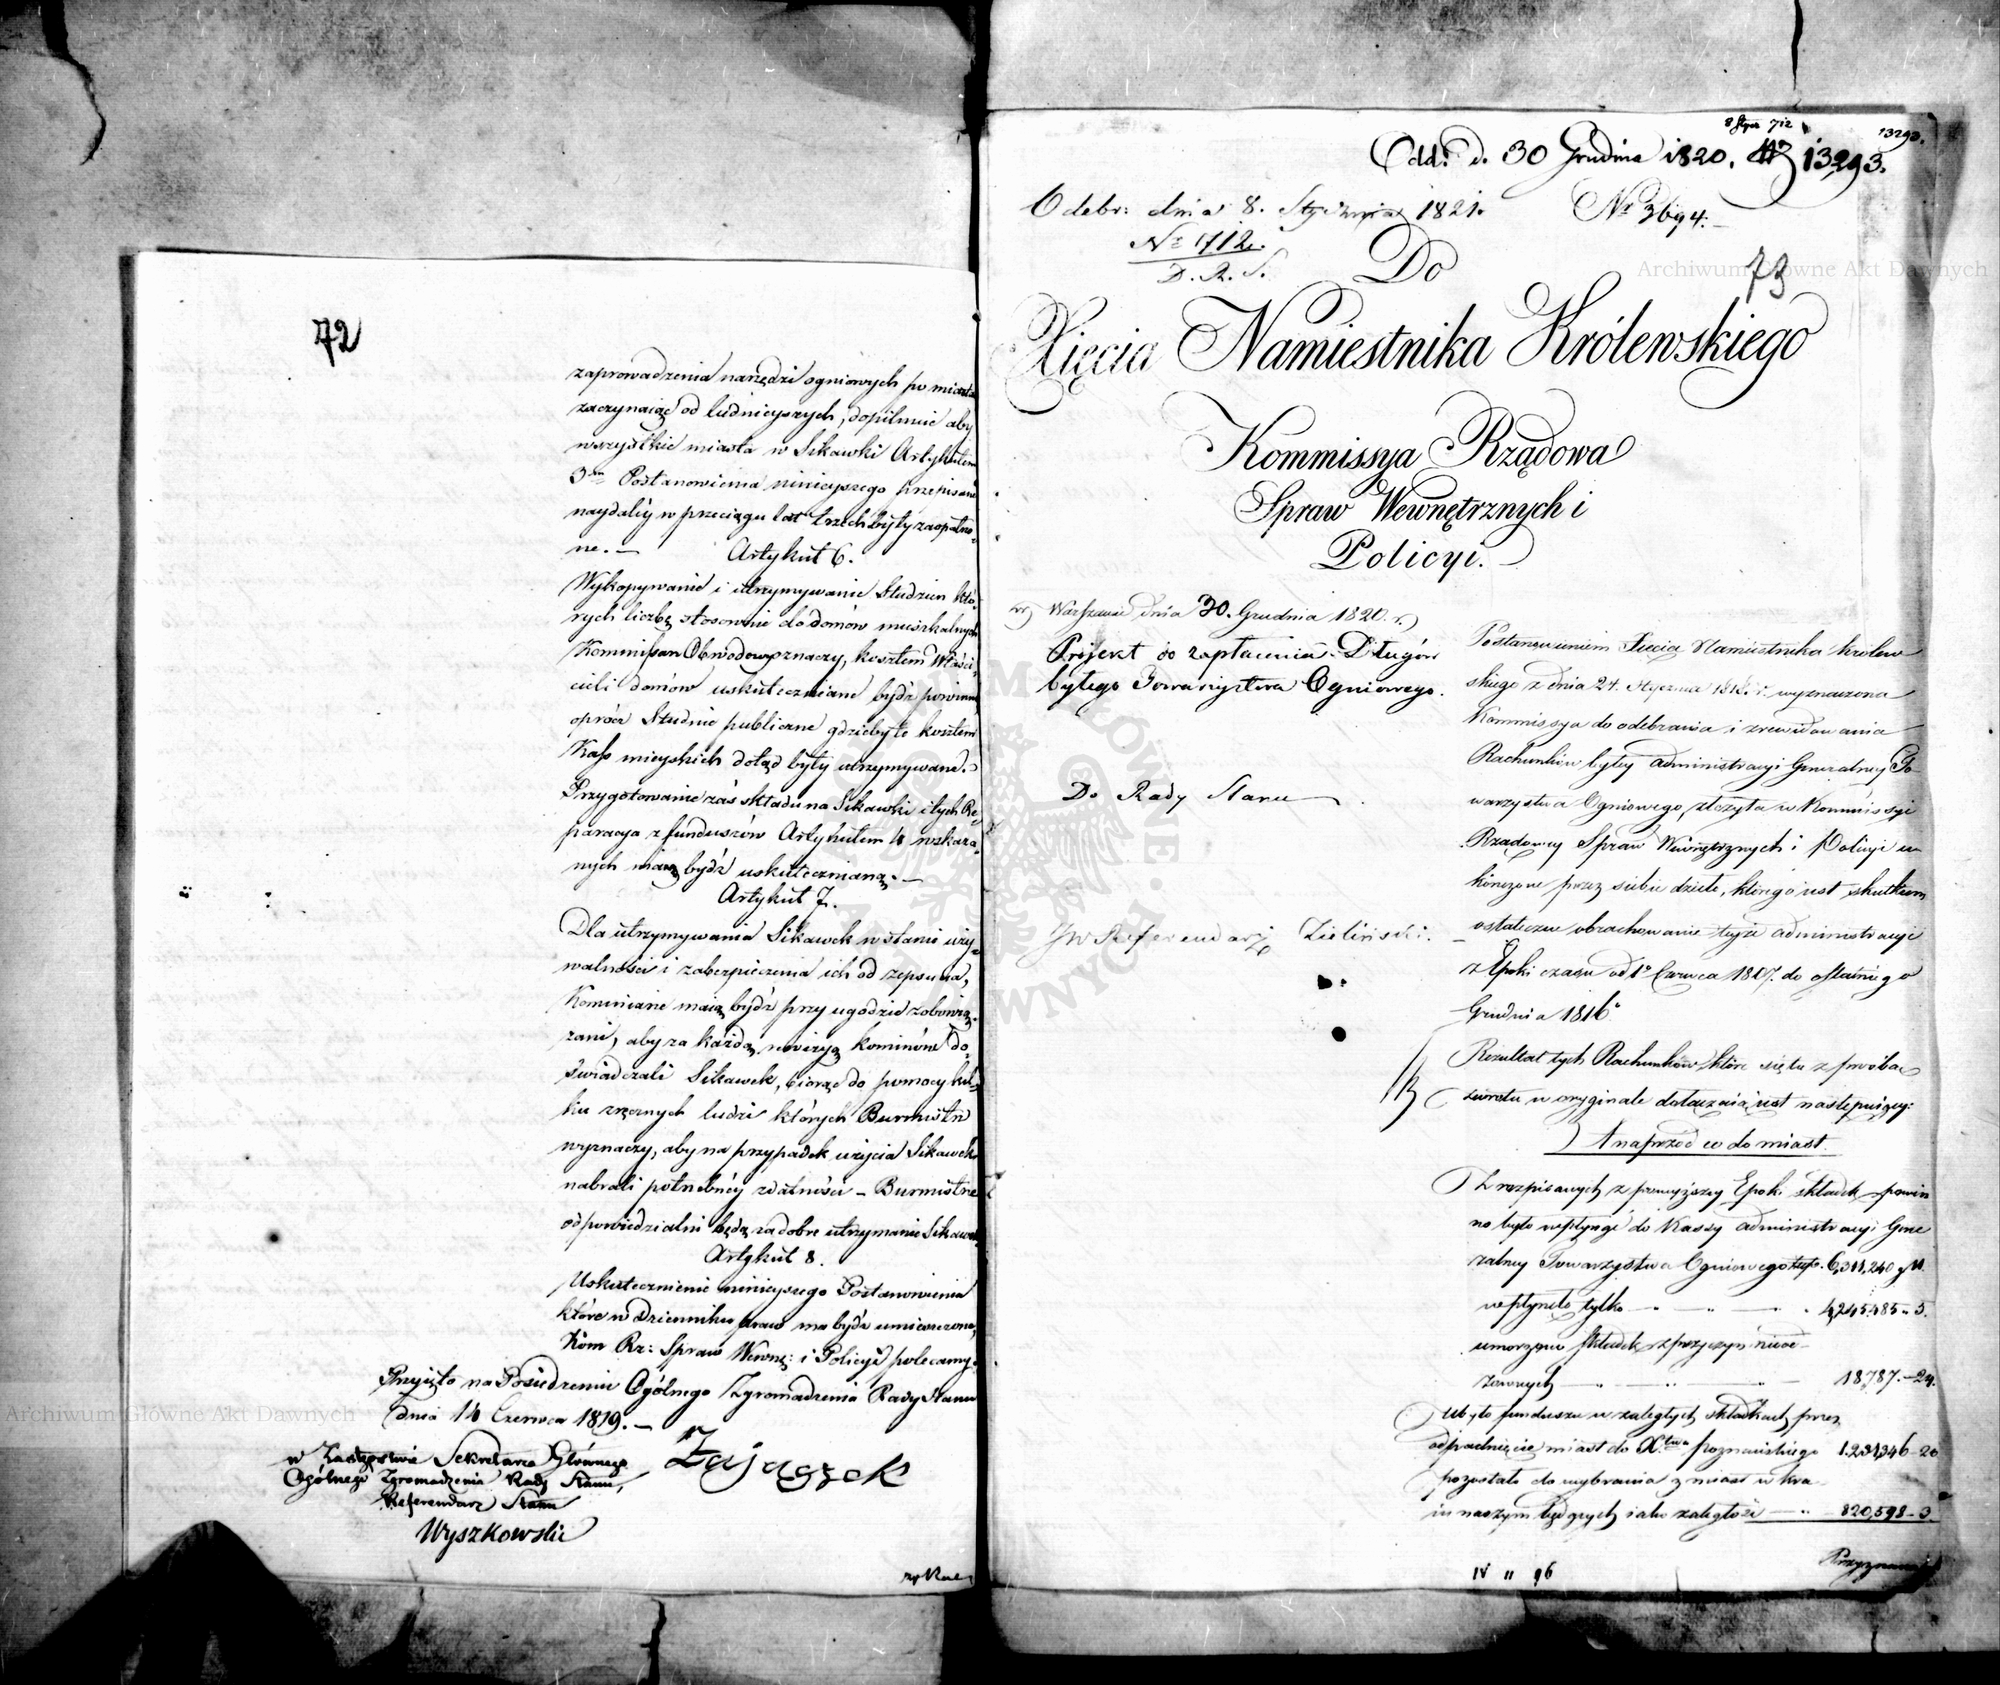 72
zaprowadzenia narzędzi ogniowych po miasta
zaczynaiąc od ludnieyszych, dopilnuie aby
wszystkie miasta w Sikawki Artykułem
3m Postanowienia ninieyszego przepisane
naydaléy w przeciągu lat trzech były zaopatrzo-
ne. —
Artykuł 6.
Wykopywanie i utrzymywanie Studzien któ-
rych liczbę stosownie do domów mieszkalnych
Kommissarz Obwodowy oznaczy, kosztem Właści-
cieli domów uskuteczniane bydź powinno,
oprócz Studnie publiczne gdzieby te kosztem
Kass mieyskich dotąd były utrzymywane.
Przygotowanie zaś składu na Sikawki i tych Re-
paracya z funduszów Artykułem 4 wskaza-
nych maią bydź uskutecznianą. —
Artykuł 7.
Dla utrzymywania Sikawek w stanie uży-
walności i zabezpieczenia ich od zepsucia,
Kominiarze maią bydź przy ugodzie zobowią-
zani, aby za każdą rewizyą kominów do-
świadczali Sikawek, biorąc do pomocy kil-
ku zręcznych ludzi których Burmistrz
wyznaczy, aby na przypadek użycia Sikawek
nabrali potrzebnéy zdatności — Burmistrze
odpowiedzialni będą za dobre utrzymanie Sikawek
Artykuł 8.
Uskutecznienie ninieyszego Postanowienia
które w Dzienniku praw ma bydź umieszczone,
Kom Rz: Spraw Wewnę: i Policyi polecamy.
Przyjęto na Posiedzeniu Ogólnego Zgromadzenia Rady Stanu
dnia 14 Czerwca 1819. —
w Zastępstwie Sekretarza Głównego
Ogólnego Zgromadzenia Rady Stanu,
Referendarz Stanu
Wyszkowski
Zajączek
Archiwum Główne Akt Dawnych
8 Stycz 712
13293.
Odd: d. 30 Grudnia 1820. 13293.
Odebr: dnia 8. Stycznia 1821.
Nr 3694.
Nr 1712.
D. R. S.
73
Archiwum Główne Akt Dawnych
Do
Xięcia Namiestnika Królewskiego
Kommissya Rządowa
Spraw Wewnętrznych i
Policyi.
w Warszawie dnia 30. Grudnia 1820. r.
Projekt do zapłacenia Długów
byłego Towarzystwa Ogniowego.
Do Rady Stanu
JW Referendarz Zieliński.
Postanowieniem Xięcia Namiestnika Królew
skiego z dnia 24. Stycznia 1818. r. wyznaczona
Kommissya do odebrania i zrewidowania
Rachunków byłey Administracyi Generalney To-
warzystwa Ogniowego, złożyła w Kommissyi
Rządowey Spraw Wewnętrznych i Policyi u-
kończone przez siebie dzieło, którego iest skutkiem
ostateczne obrachowanie teyże Administracyi
z Epoki czasu od 1o Czerwca 1807. do ostatniego
Grudnia 1816o
Rezultat tych Rachunków, które się tu z prośbą o
zwrotu w oryginale dołączaią, iest następuiący:
A naprzód co do miast.
Z rozpisanych z powyższey Epoki składek powin
no było wpłynąć do Kassy Administracyi Gene
ralney Towarzystwa Ogniowego złp. 6,311,240 gr 11.
wpłynęło tylko — 4,245,485 „ 5.
umorzono składek z przyczyn nieod-
zownych — 18,787. — 24.
Ubyło funduszu w zaległych składkach przez
odpadnięcie miast do Xtwa Poznańskiego 1,231,346 — 20
pozostało do wybrania z miast w kra-
iu naszym będących iako zaległość — 820,598 — 3.
IV „ 96